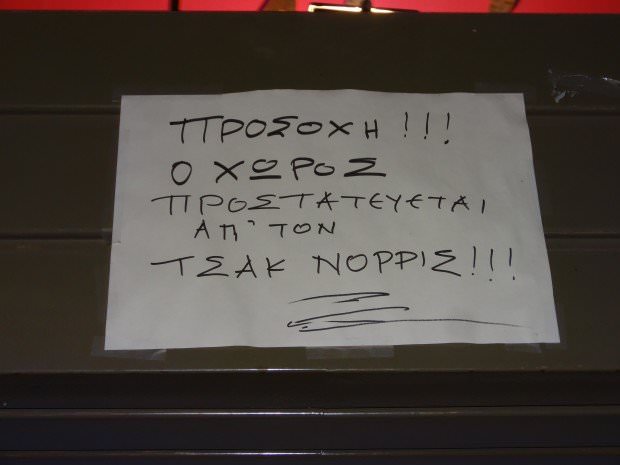 ΠΡΟΣΟΧΗ!!!
Ο ΧΩΡΟΣ
ΠΡΟΣΤΑΤΕΥΕΤΑΙ
ΑΠ' ΤΟΝ
ΤΣΑΚ ΝΟΡΡΙΣ!!!